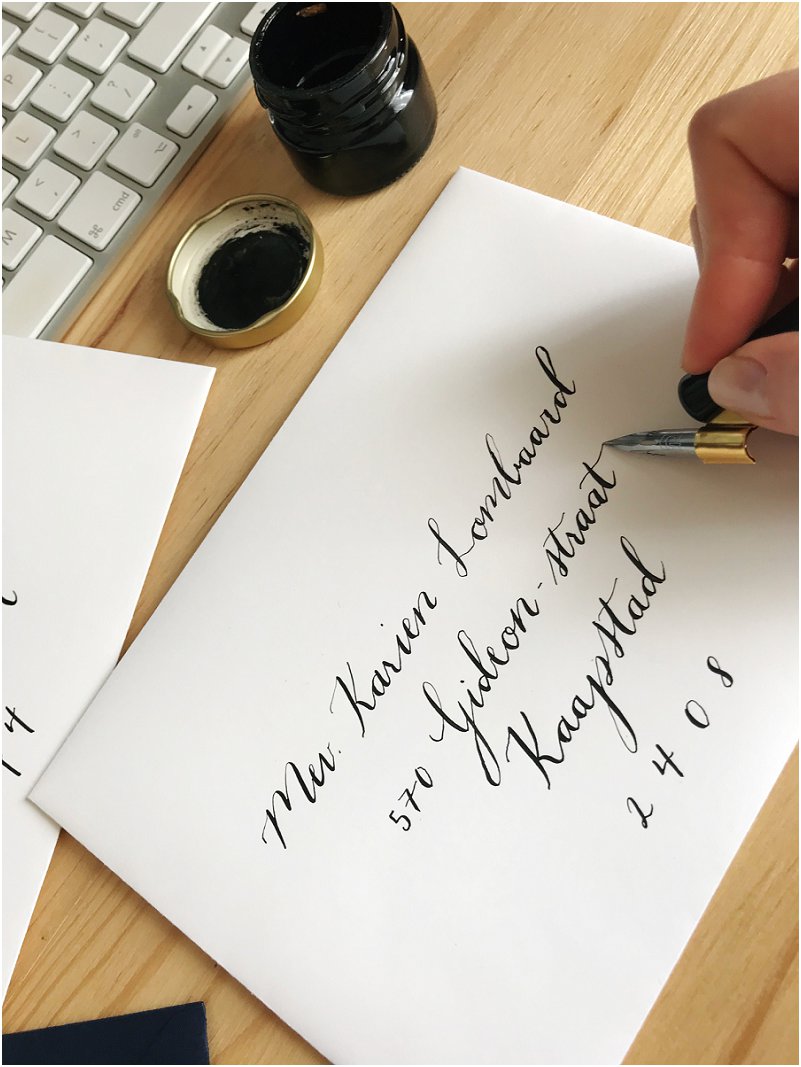 Mev. Karien Lombaard
570 Gideon-straat
Kaapstad
2408
14
P
L
M
{ [
} ]
" '
: ;
? /
> .
< ,
alt
cmd
⌘